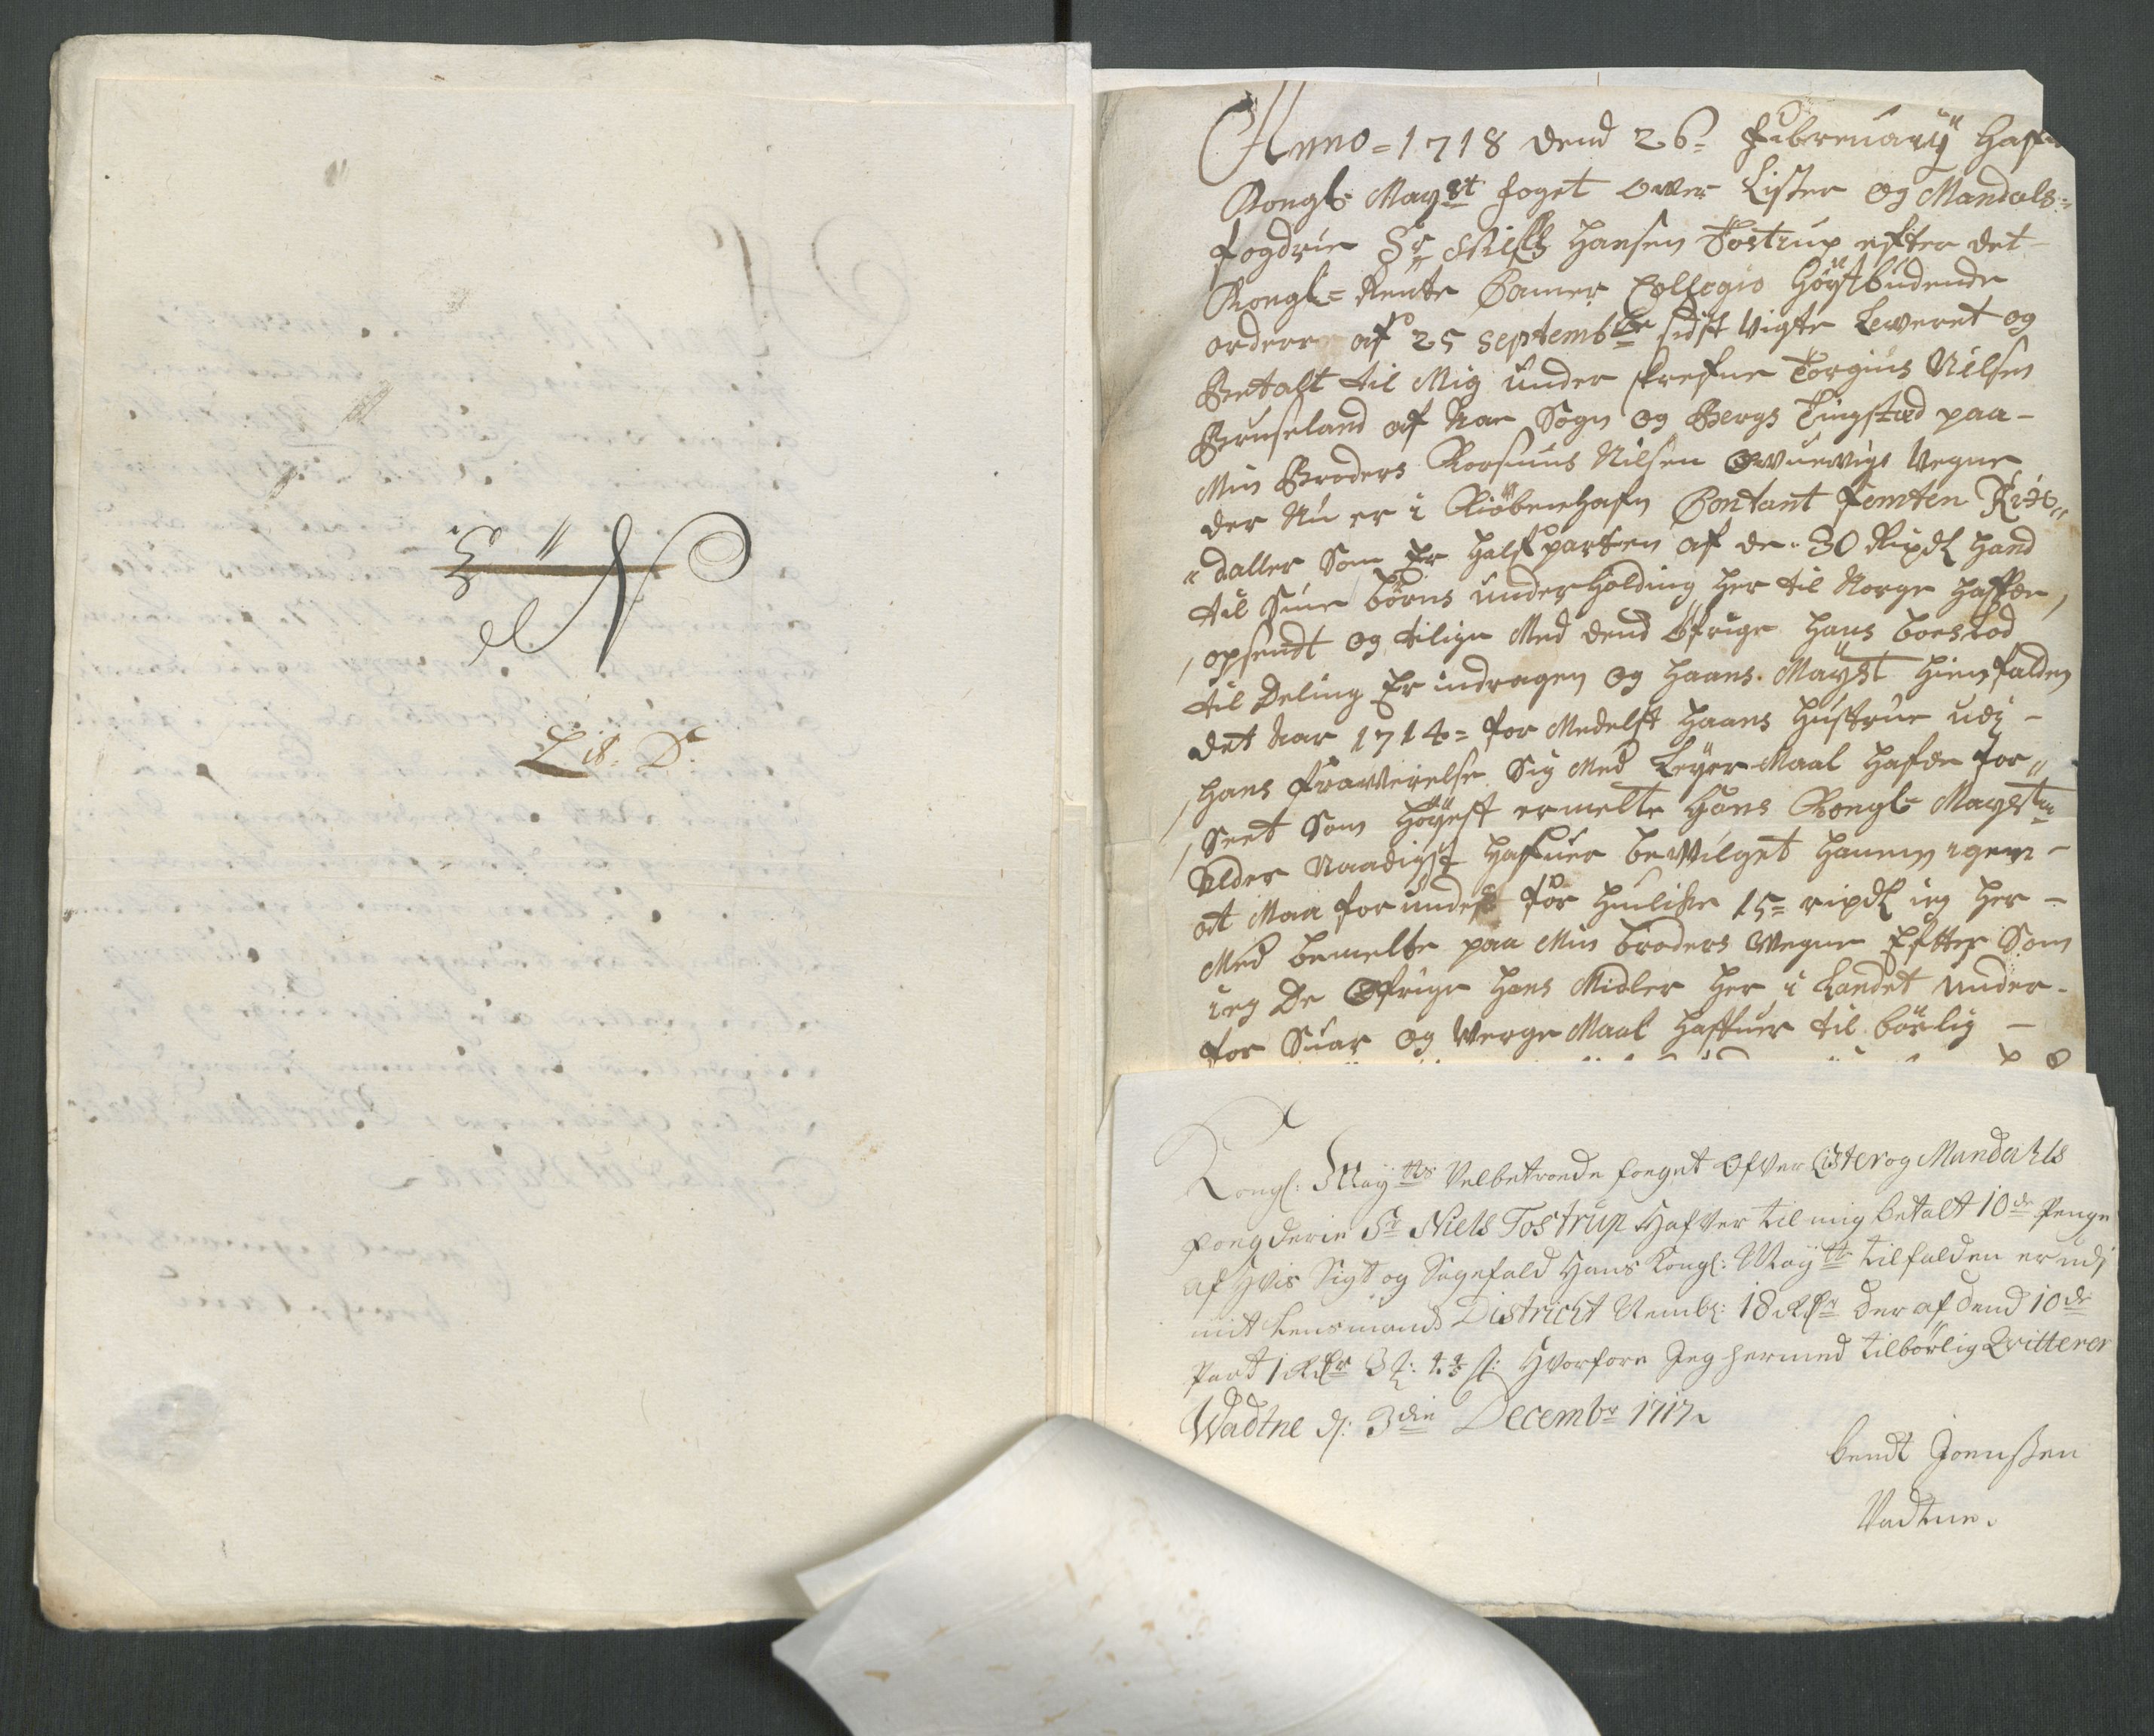 N 3
Lit. D:
Anno = 1718 dend 26= Februarij haf
Kongl: Mayst foget over Lister og Mandals=
fogdrie Sr Nilss Hansen Tostrup efter det
Kongl= Rente Camer Collegio höystbudende
ordere af 25 septembr sidst Leveret og
Betalt til Mig under skrefne Torgius Nilsen
Bruseland af Sogn og Bergs Tingstæd paa
Min Broders Rasmus Nilsen Vegne
der Nu er i Kiöbenhafn Contant femten Rix
daller Som Er halfparten af de 30 Rixdl hand
til Sine börns underholding her til Norge haffde
opsendt og tilige Med dend öfrige hans boeslod
til Deling Er indragen og Haans Mayst hiemfalden
det Aar 1714= for Medelst Haans Hustrue udj
hans fraverelse Sig Med Leyer Maal hafde for
Seet Som Höyest ermelte Hans Kongl= Mayst
Alder Naadigst Hafuer bewilget hannem igen
at Maa forundes for huilke 15= rixdl ieg her
Med bemelte paa Min broders Vegne Efter Som
ieg De öfrige hans Midler her i Landet under
for Suar og Werge Maal haffuer til börlig
Kongl: May tts Velbetroede foeget Ofver Lister og Mandahls
foegderie Sr Niels Tostrup Hafver til mig betalt 10de Penge
af Hvis Sigt og Sagefald Hans Kongl: May tt tilfalden er udj
mit Lensmands Districht Nembl: 18 Rdr Der af dend 10de
Part 1 Rdr 3 Hvorfore Jeg hermed tilbörlig Qvitterer
Wadtne d: 3die Decembr 1717
bendt Joenssen
Vadtne.